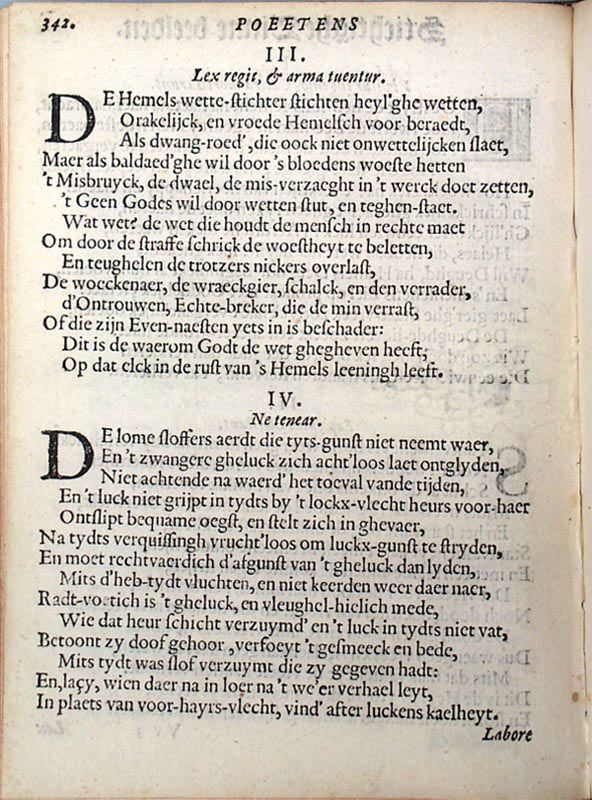 342. POEETENS
III.
Lex regit, & arma tuentur.
DE Hemels wette-stichter stichten heyl'ghe wetten,
Orakelijck, en vroede Hemelsch voor beraedt,
Als dwang-roed', die oock niet onwettelijcken slaet,
Maer als baldaed'ghe wil door 's bloedens woeste hetten
't Misbruyck, de dwael, de mis-verzaeght in 't werck doet zetten,
't Geen Godes wil door wetten stut, en teghen-staet.
Wat wet? de wet die houdt de mensch in rechte maet
Om door de straffe schrick de woestheyt te beletten,
En teughelen de trotzers nickers overlast,
De woeckenaer, de wraeckgier, schalck, en den verrader,
d'Ontrouwen, Echte-breker, die de min verrast,
Of die zijn Even-naesten yets in is beschader:
Dit is de waerom Godt de wet ghegheven heeft,
Op dat elck in de rust van 's Hemels leeningh leeft.
IV.
Ne tenear.
DE lome sloffers aerdt die tyts-gunst niet neemt waer,
En 't zwangere gheluck zich acht'loos laet ontglyden,
Niet achtende na waerd' het toeval vande tijden,
En 't luck niet grijpt in tydts by 't lockx-vlecht heurs voor-haer
Ontslipt bequame oegst, en stelt zich in ghevaer,
Na tydts verquissingh vrucht'loos om luckx-gunst te stryden,
En moet rechtvaerdich d'afgunst van 't gheluck dan lyden,
Mits d'heb-tydt vluchten, en niet keerden weer daer naer,
Radt-voetich is 't gheluck, en vleughel-hielich mede,
Wie dat heur schicht verzuymd' en 't luck in tydts niet vat,
Betoont zy doof gehoor, verfoeyt 't gesmeeck en bede,
Mits tydt was slof verzuymt die zy gegeven hadt:
En, laçy, wien daer na in loer na 't we'er verhael leyt,
In plaets van voor-hayrs-vlecht, vind' after luckens kaelheyt.
Labore